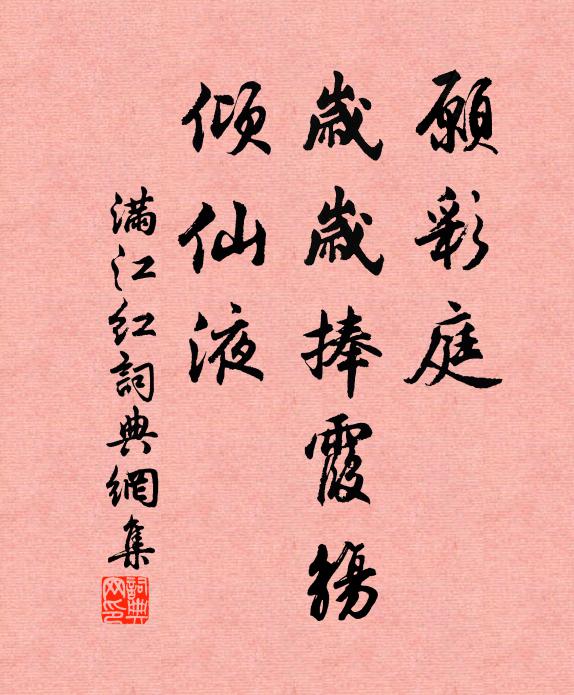 願彩庭
歲歲捧霞觴
傾仙液
满江红詞典網集
詞典网印